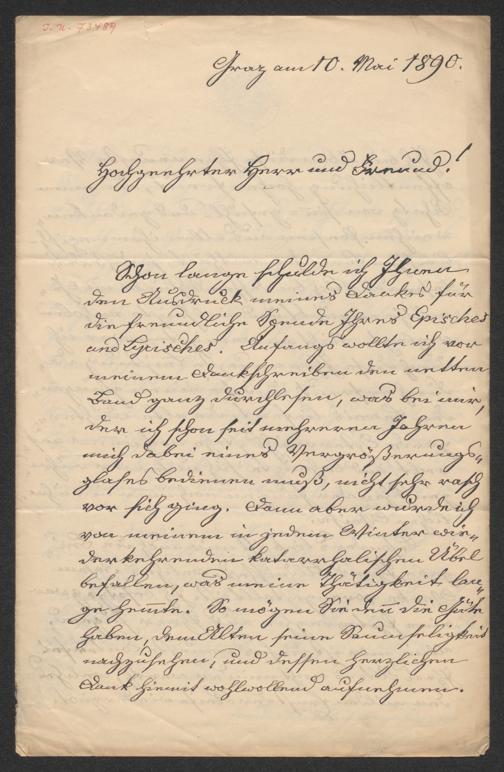 I. N. 73489
Graz am 10. Mai 1890.
Hochgeehrter Herr und Freund!
Schon lange schulde ich Ihnen
den Ausdruck meines Dankes für
die freundliche Spende Ihres Episches
und Lyrisches. Anfangs wollte ich vor
meinem Dankschreiben den netten
Band ganz durchlesen, was bei mir,
der ich schon seit mehreren Jahren
mich dabei eines Vergrößerungs-
glases bedienen muß, nicht sehr rasch
vor sich ging. Dann aber wurde ich
von meinem in jedem Winter wie-
derkehrenden katarrhalischen Übel
befallen, was meine Thätigkeit lan-
ge hem̅te. So mögen Sie den̅ die Güte
haben, dem Alten seine Saumseligkeit
nachzusehen, und dessen herzlichen
Dank hiemit wohlwollend aufnehmen.